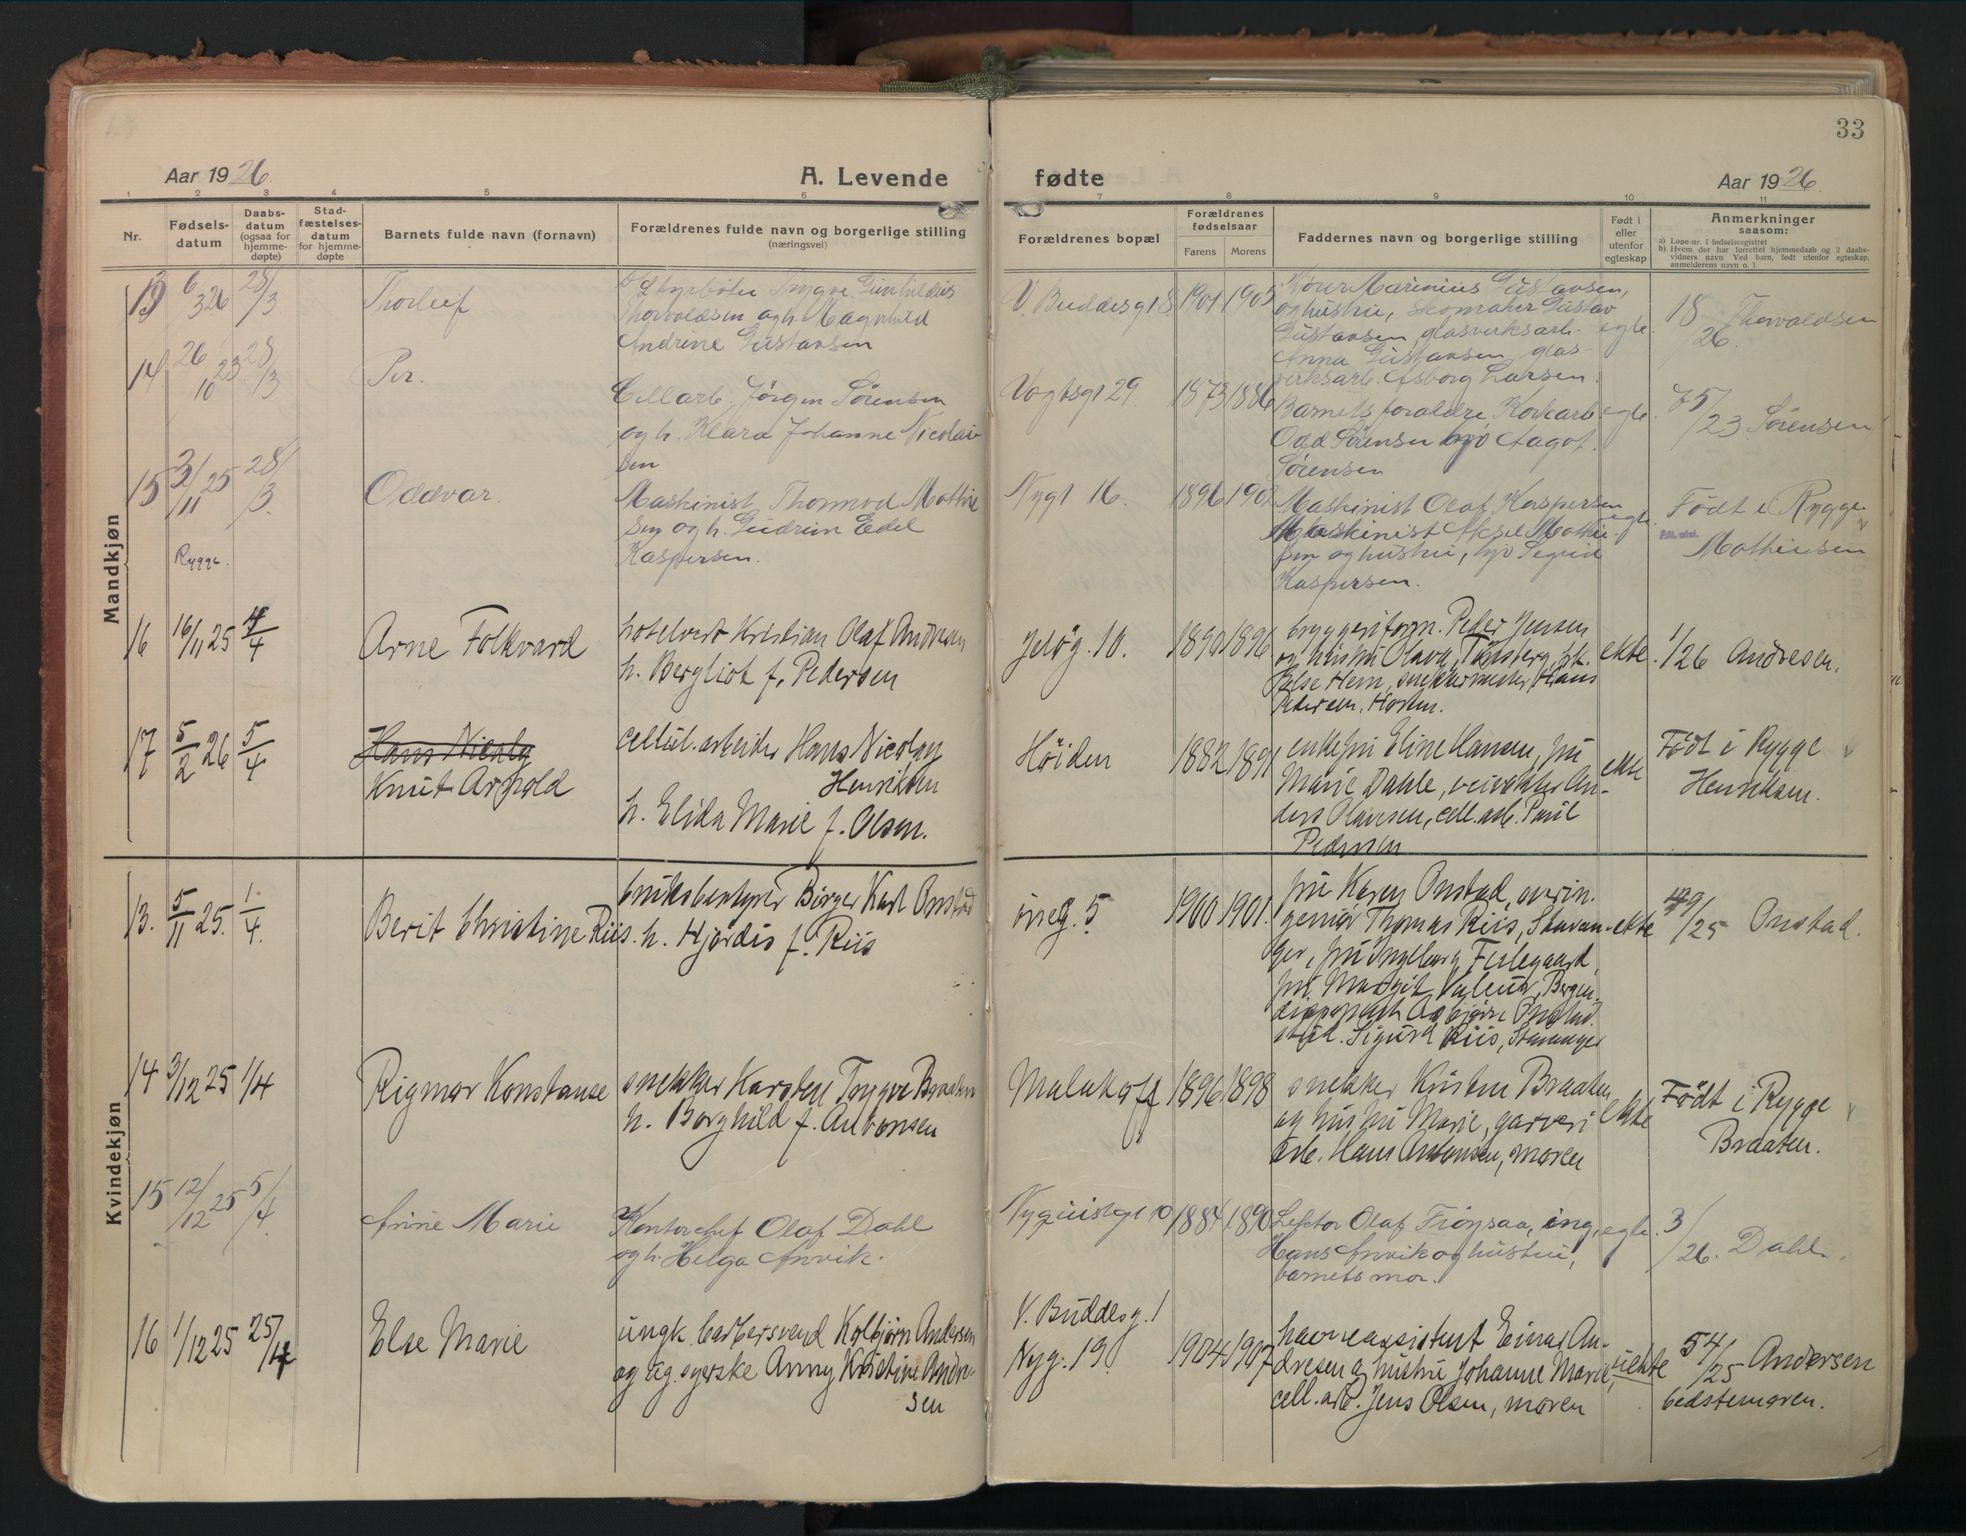 33
Aar 1926.
A. Levende
fødte
Aar 1926.
1 2 3 4 5 6 7 8 9 10 11
Nr.
Fødsels-
datum
Daabs-
datum
(ogsaa for
hjemme-
døpte)
Stad-
fæstelses-
datum
for hjemme-
døpte
Barnets fulde navn (fornavn)
Forældrenes fulde navn og borgerlige stilling
(næringsvei)
Forældrenes bopæl
Forældrenes
fødselsaar
Farens
Morens
Faddernes navn og borgerlige stilling
Født i
eller
utenfor
egteskap
Anmerkninger
saasom:
a) Løpe-nr. i fødselsregistret
b) Hvem der har forrettet hjemmedaab og 2 daabs-
vidners navn Ved barn, født utenfor egteskap,
anmelderens navn o. l
Mandkjøn
13 6/3 26 28/3 Thorleif
Trygve
Thorvaldsen og h. Magnhild
Andrine Gustavsen
V. Buddesgt 8 1901 1905
Marinius Gustavsen,
og hustru, Skomaker Gustav
Gustavsen, glasverksarb.
Anna Gustavsen, glas-
verksarb. Asborg Larsen.
egte.
18/26 Thorvaldsen
14 26/10 23 28/3 Per.
Cellarb. Jörgen Sörensen
og h. Klara Johanne Nicolai-
sen
Vogtsgt 29. 1873 1886
Barnets foraldre, Korkarb.
Odd Sörensen frö Aagot
Sörensen
egte
75/23 Sörensen
15 /11 25 28/3. Oddvar.
Rygge.
Maskinist Thormod Mathie
sen og h. Gudrun Edel
Kaspersen.
Nygt 16. 1896 1902
Maskinist Olaf Kaspersen
Maskinist Aksel Mathie-
sen og hustru, frö Sigrid
Kaspersen.
egte.
Født i Rygge
Mathiesen
16 16/11 25 4/4 Arne Folkvard
hotelvert Kristian Olaf Andresen
h. Bergliot f. Pedersen
Jeløg. 10. 1890 1896
bryggeriform. Peder Jensen
og hustru Olava, Tønsberg, frk.
Else Hem, snekkermester Hans
Pedersen, Horten.
ekte.
1/26 Andresen.
17 5/2 26 5/4 Hans Nicolay
Knut Arnold
cellul. arbeider Hans Nicolay
Henriksen
h. Elida Marie f. Olsen.
Høiden 1882 1891
enkefru Eline Hansen, fru
Marie Dahle, veivokter An-
ders Olavesen, cell. arb. Paul
Pedersen
ekte
Født i Rygge
Henriksen.
Kvindekjøn
13. 5/11 25. 1/4. Berit Christine Riis.
bruksbestyrer Birger Karl Onstad
h. Hjørdis f. Riis
g. 5 1900 1901.
fru Karen Onstad, overin-
geniør Thomas Riis, Stavan-
ger, fru Ingeborg
fru Margit Bergen,
Asbjørn Onstad.
stud. Sigurd Riis, Stavanger
ekte
49/25 Onstad.
14 3/12 25 1/4 Rigmor Konstanse
snekker Karsten Trygve Braaten
h. Borghild f. Antonsen
Malakoff 1896 1898
snekker Kristen Braaten
og hustru Marie, garveri
arb. Hans Antonsen, moren
ekte
Født i Rygge
Braaten.
15 12/12 25 5/4. Anne Marie
Kontorchef Olaf Dahl
og h. Helga Anvik.
Nyquistgt 10 1884 1890
Lektor Olaf Frøysaa, ing.
Hans Anvik og hustru,
barnets mor.
egte.
3/26. Dahl.
16 1/12 25 25/4 Else Marie
ungk. barbersvend Kolbjørn Andersen
og pg. syerske Anny Kristine Andre-
sen
V. Buddesg. 1
Nyg. 19 1904 1907
havneassistent Einar An-
dresen og hustru Johanne Marie,
cell. arb. Jens Olsen, moren
uekte
54/25 Andersen
bedstemoren.